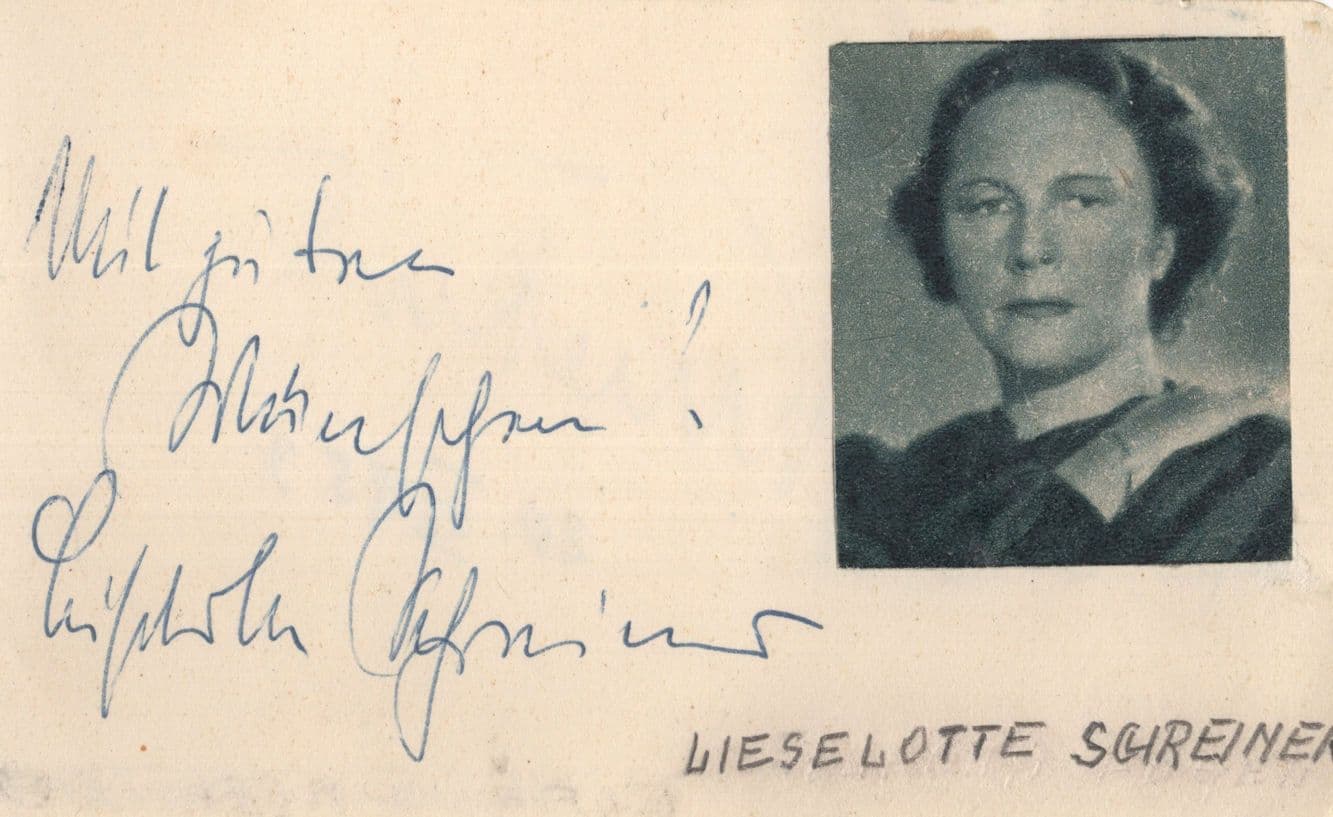 Mit guten
Wünschen!
Liselotte Schreiner
LIESELOTTE SCHREINER